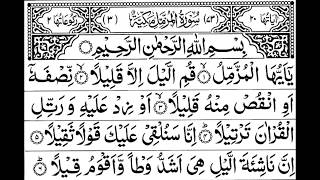 اٰيَاتُهَا ٢٠ (٧٣) سُوْرَةُ الْمُزَّمِّلِ مَكِّيَّةٌ (٣) رُكُوْعَاتُهَا ٢
بِسْمِ اللّٰهِ الرَّحْمٰنِ الرَّحِيْمِ
يٰۤاَيُّهَا الْمُزَّمِّلُ ۙ‏١ قُمِ الَّيْلَ اِلَّا قَلِيْلًا ۙ‏٢ نِّصْفَهٗۤ
اَوِ انْقُصْ مِنْهُ قَلِيْلًا ۙ‏٣ اَوْ زِدْ عَلَيْهِ وَ رَتِّلِ
الْقُرْاٰنَ تَرْتِيْلًا ؕ‏٤ اِنَّا سَنُلْقِيْ عَلَيْكَ قَوْلًا ثَقِيْلًا ‏٥
اِنَّ نَاشِئَةَ الَّيْلِ هِيَ اَشَدُّ وَطْاً وَّ اَقْوَمُ قِيْلًا ؕ‏٦